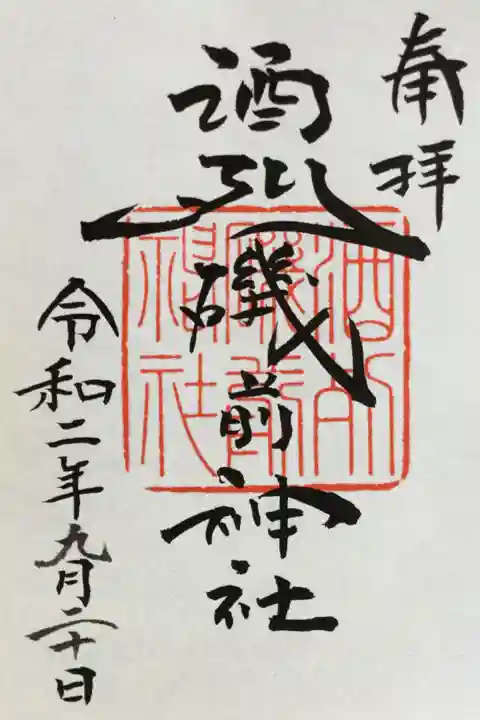 奉拝
酒列磯前神社
酒列
磯前
神社
令和二年九月二十日